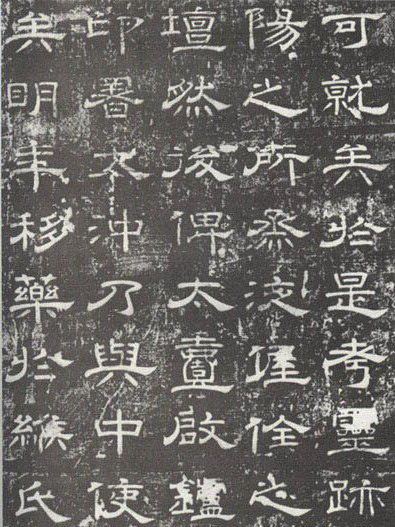 可就矣於是考靈跡
陽之所烝液偓佺之
壇然後俾太壹啟鑪
印署太沖乃與中使
矣明年移藥於緱氏